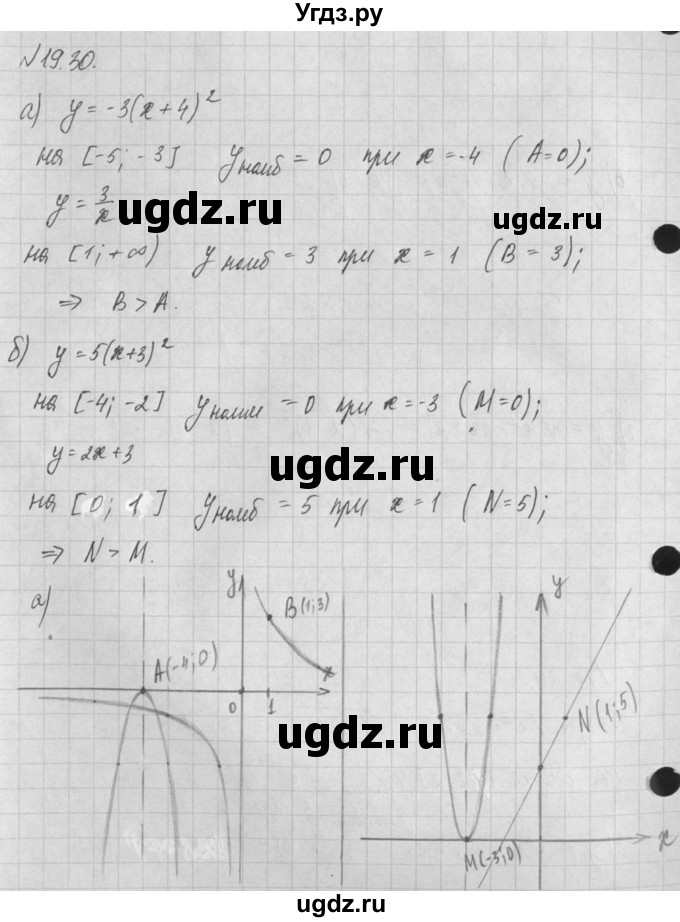 Угдз.ру
№19.30.
а) y = -3(x+4)²
на [-5; -3] yнаиб = 0 при x = -4 (A=0);
y = 3/x
ugdz.ru
ugdz.ru
на [1; +∞) yнаиб = 3 при x = 1 (B = 3);
⇒ B > A.
б) y = 5(x+3)²
на [-4; -2] yнаим = 0 при x = -3 (M=0);
y = 2x+3
ugdz.ru
на [0; 1] yнаиб = 5 при x = 1 (N=5);
⇒ N > M.
а)
y
B(1;3)
x
A(-4;0)
0 1
y
N(1;5)
ugdz.ru
x
M(-3;0)
ugdz.ru